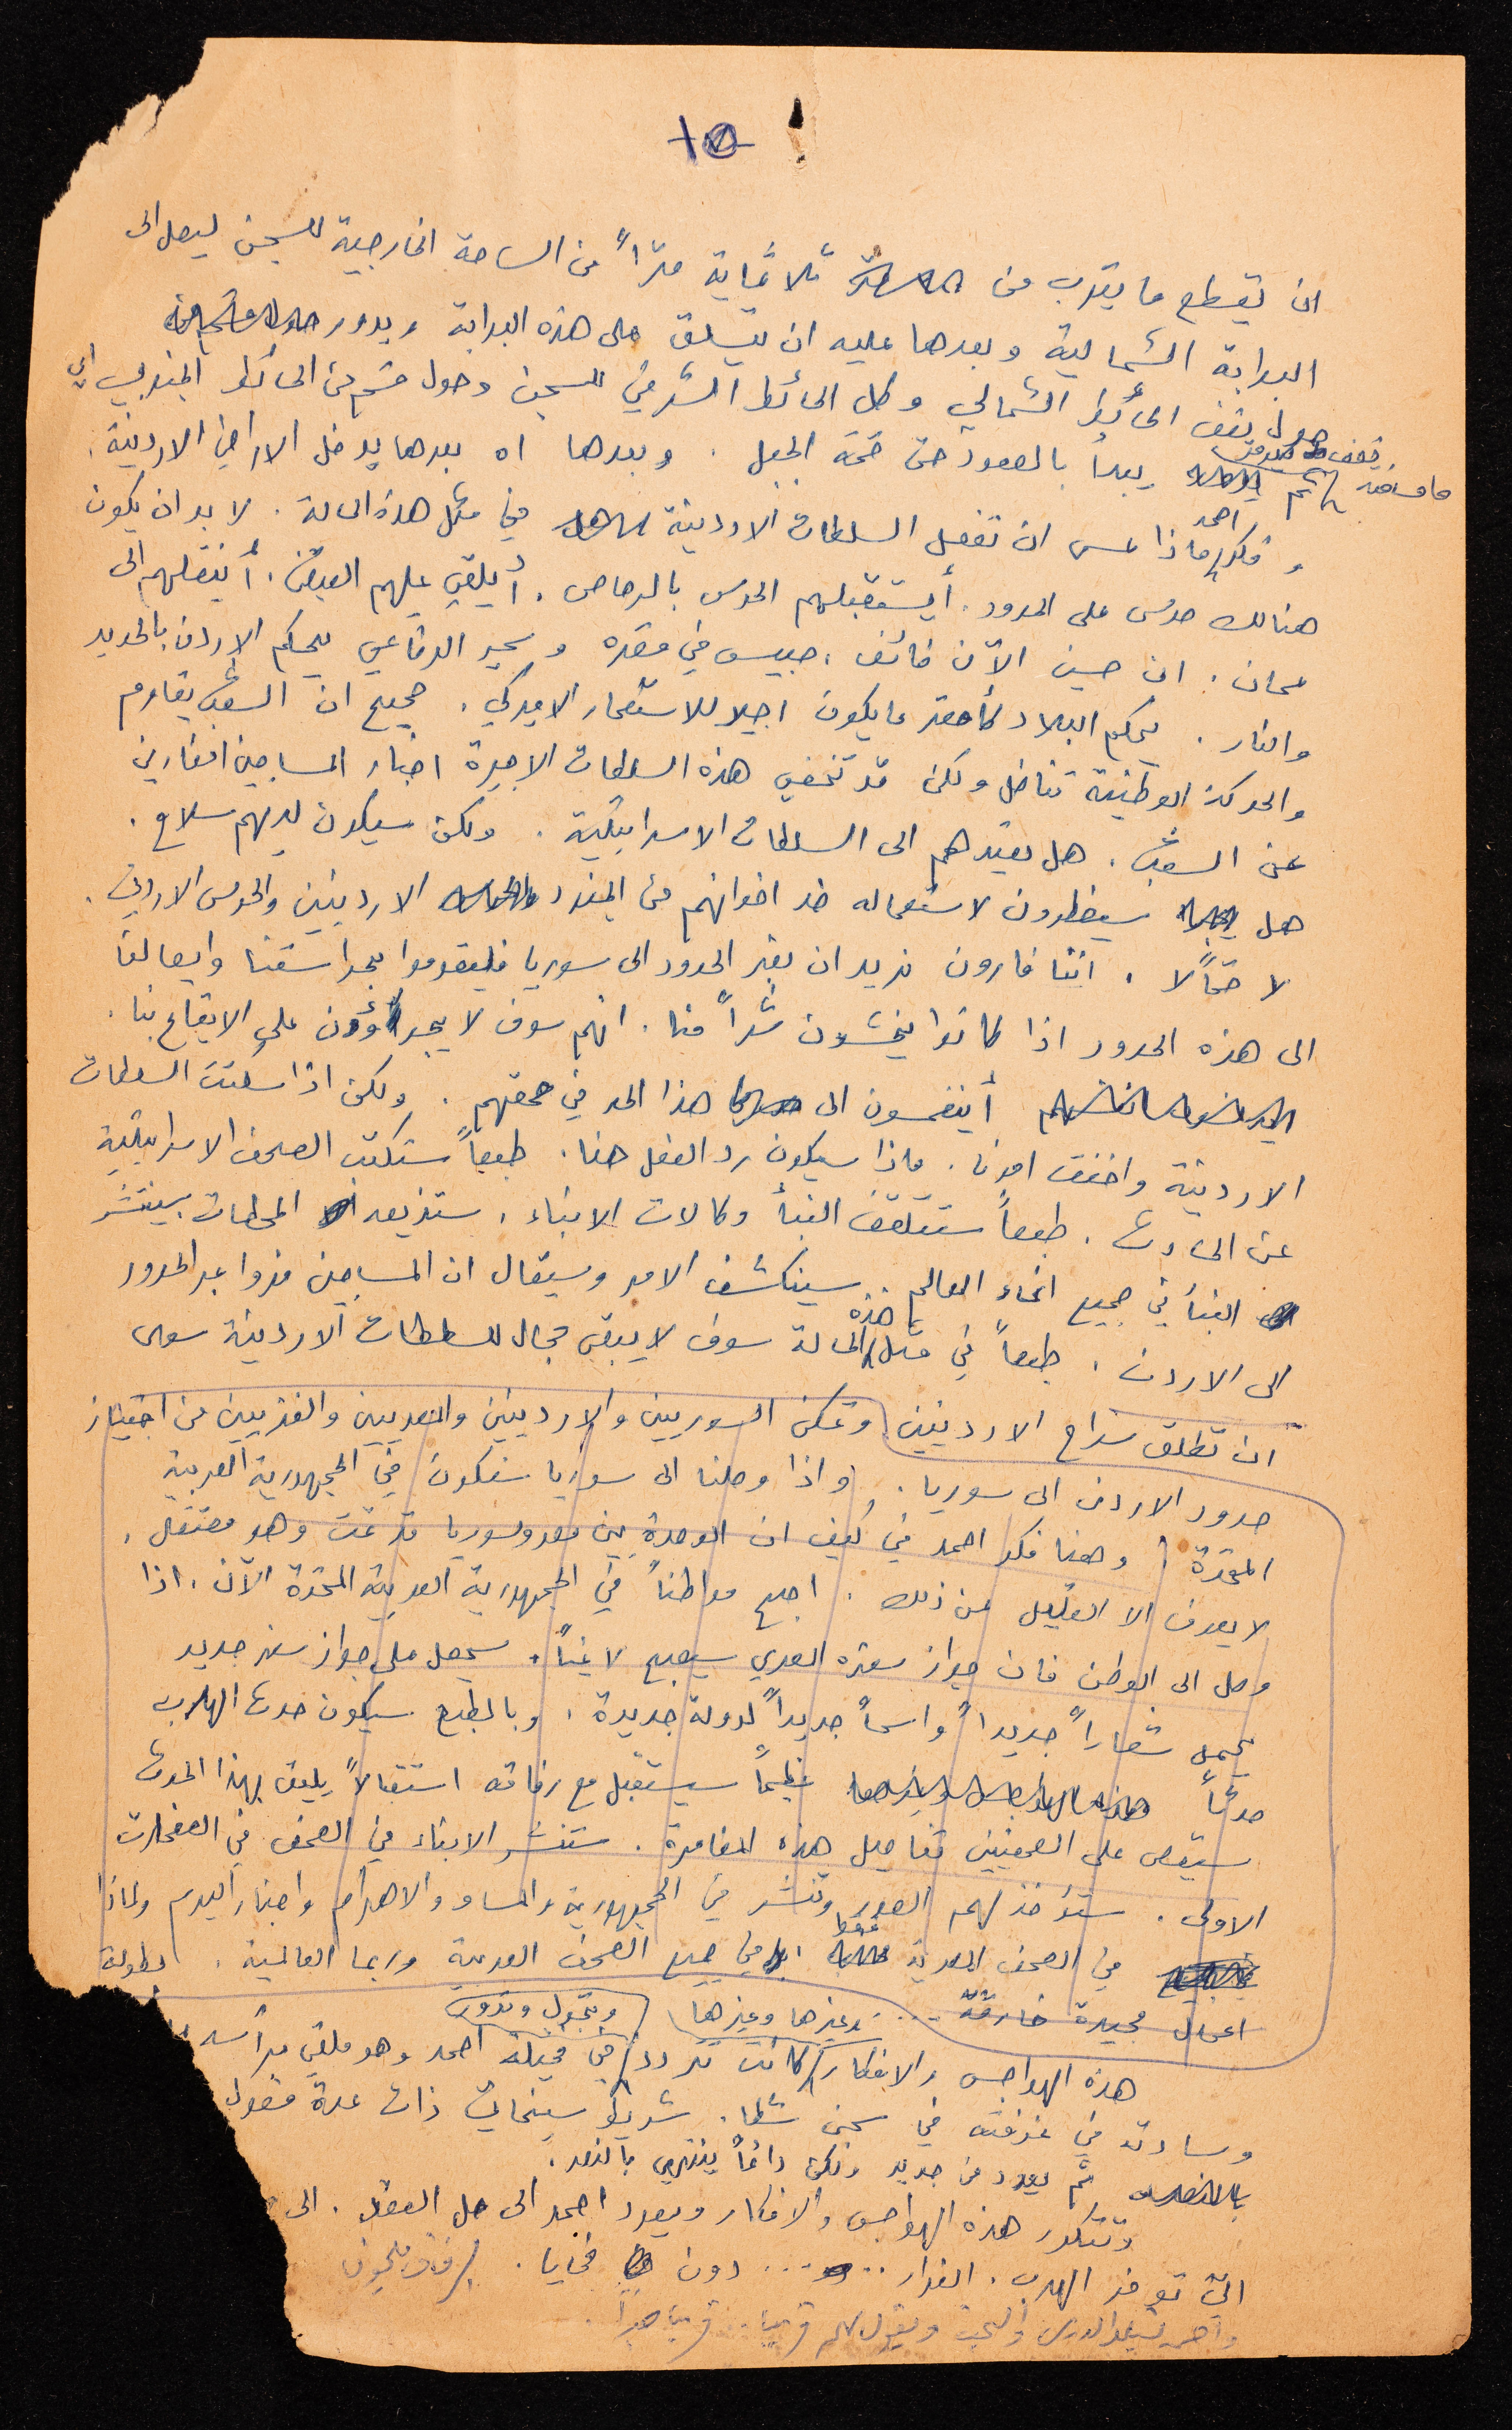 ١٥
ان يقطع ما يقرب من ثلاثماية متراً من الساحة الخارجية للسجن ليصل الى
البوابة الشمالية وبعدها عليه ان يتسلق على هذه البوابة ويدور
حول نصف الحائط الشمالي وكل الحائط الشرقي للسجن وحول قسم من الحائط الجنوبي اي
ما مسافته نصف
ثم يبدأ بالصعود حتى قمة الجبل . وبعدها اه بعدها يدخل الاراضي الاردنية .
وفكر احمد ماذا عسى ان تفعل السلطات الاردنية في مثل هذه الحالة . لا بد ان يكون
هنالك حرس على الحدود . أيستقبلهم الحرس بالرصاص . أيلقي عليهم القبض . أينقلهم الى
عمان . ان حسين الآن خائف ، حبيس في قصره وسمير الرفاعي يحكم الاردن بالحديد
والنار . يحكم البلاد كأحقر ما يكون اجيلا للاستعمار الاميركي . صحيح ان الشعب يقاوم
والحركة الوطنية تناضل ولكن قد تخفي هذه السلطات الاجيرة اخبار المساجين الفارين
عن الشعب . هل يعيدهم الى السلطات الاسرائيلية . ولكن سيكون لديهم سلاح .
هل سيضطرون لاستعماله ضد اخوانهم من الجنود الاردنيين والحرس الاردني .
لا حتماً لا . اننا فارون نريد ان نعبر الحدود الى سوريا فليقوموا بحراستنا وايصالنا
الى هذه الحدود اذا كانوا يخشون شراً منا . انهم سوف لا يجرأوون على الايقاع بنا .
أينغمسون الى هذا الحد في حمقهم . ولكن اذا سكتت السلطات
الاردنية واخفت امرنا . ماذا سيكون رد الفعل هنا . طبعاً ستكتب الصحف الاسرائيلية
عن الحادث . طبعاً ستتلقف النبأ وكالات الانباء . ستذيعه المحطات سينتشر
النبأ في جميع انحاء العالم . سينكشف الامر وسيقال ان المساجين فروا عبر الحدود
الى الاردن . طبعاً في مثل هذه الحالة سوف لا يبقى مجال للسلطات الاردنية سوى
ان تطلق سراح الاردنيين وتمكن السوريين والاردنيين والمصريين والغزيين من اجتياز
حدود الاردن الى سوريا . واذا وصلنا الى سوريا سنكون في الجمهورية العربية
المتحدة وهنا فكر احمد في كيف ان الوحدة بين مصر وسوريا قد تمت وهو معتقل .
لا يعرف الا القليل عن ذلك . اصبح مواطناً في الجمهورية العربية المتحدة الآن . اذا
وصل الى الوطن فان جواز سفره المصري سيصبح لاغياً . سيحصل على جواز سفر جديد
يحمل شعاراً جديداً واسماً جديداً لدولة جديدة . وبالطبع سيكون حدث الهرب
حدثاً عظيماً سيستقبل مع رفاقه استقبالاً يليق بهذا الحدث
سيقص على الصحفيين تفاصيل هذه المغامرة . ستنشر الانباء في الصحف في الصفحات
الاولى . ستؤخذ لهم الصور وتنشر في الجمهورية والمساء والاهرام واخبار اليوم ولماذا
في الصحف المصرية فقط بل في جميع الصحف العربية وربما العالمية . بطولة
اعمال مجيدة خارقة ....
هذه الهواجس والافكار وغيرها وغيرها كانت تتردد وتتجول وتدور في مخيلة احمد وهو ملقي برأسه
وسادته في غرفته في سجن شطا . شريط سينمائي ذات عدة فصول
ثم يعود من جديد ولكن دائماً ينتهي بالنصر .
وتتكرر هذه الهواجس والافكار ويعود احمد الى حل العقد . الى
التي توفر الهرب . الفرار .... دون ضحايا .
واحمد يتابع الدرس والبحث ويقول لهم قريباً .. قريباً جداً .